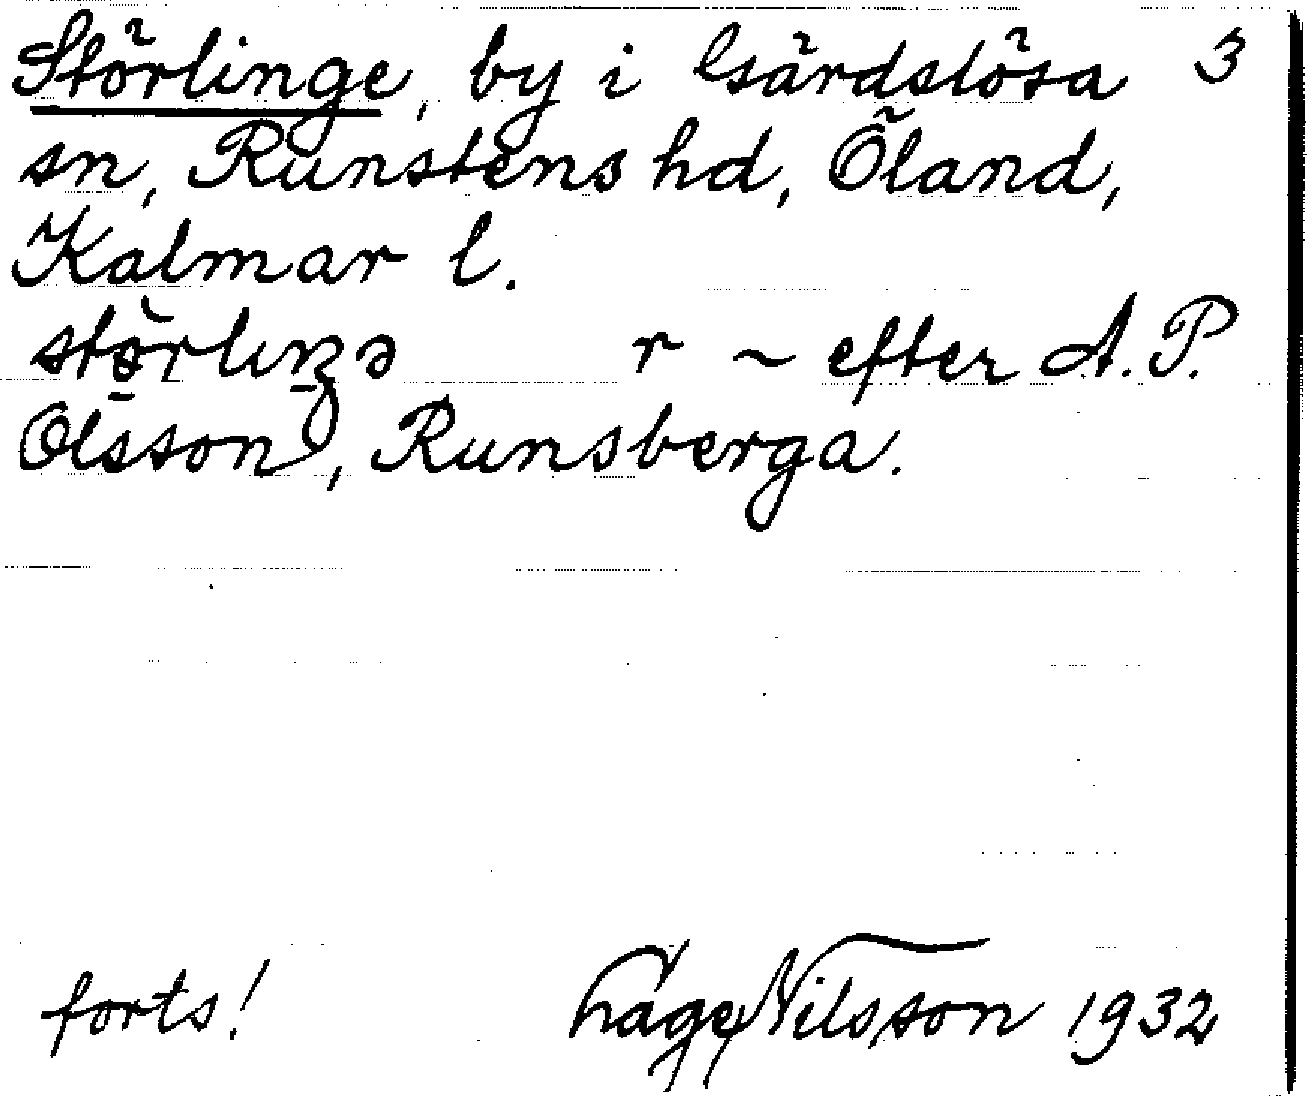 Störlinge, by i Gärdslösa 3
sn, Runstens hd, Öland,
Kalmar l.
r ~ efter A. P.
Olsson, Runsberga.
forts! Nilsson 1932